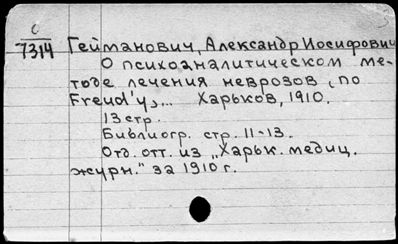 О
7314
Гейманович, Александр Иосифович
О психоаналитическом ме-
тоде лечения неврозов „по
Freud'у„... Харьков, 1910.
13 стр.
Библиогр. стр. 11-13.
Отд. отт. из „Харьк. медиц.
журн." за 1910 г.